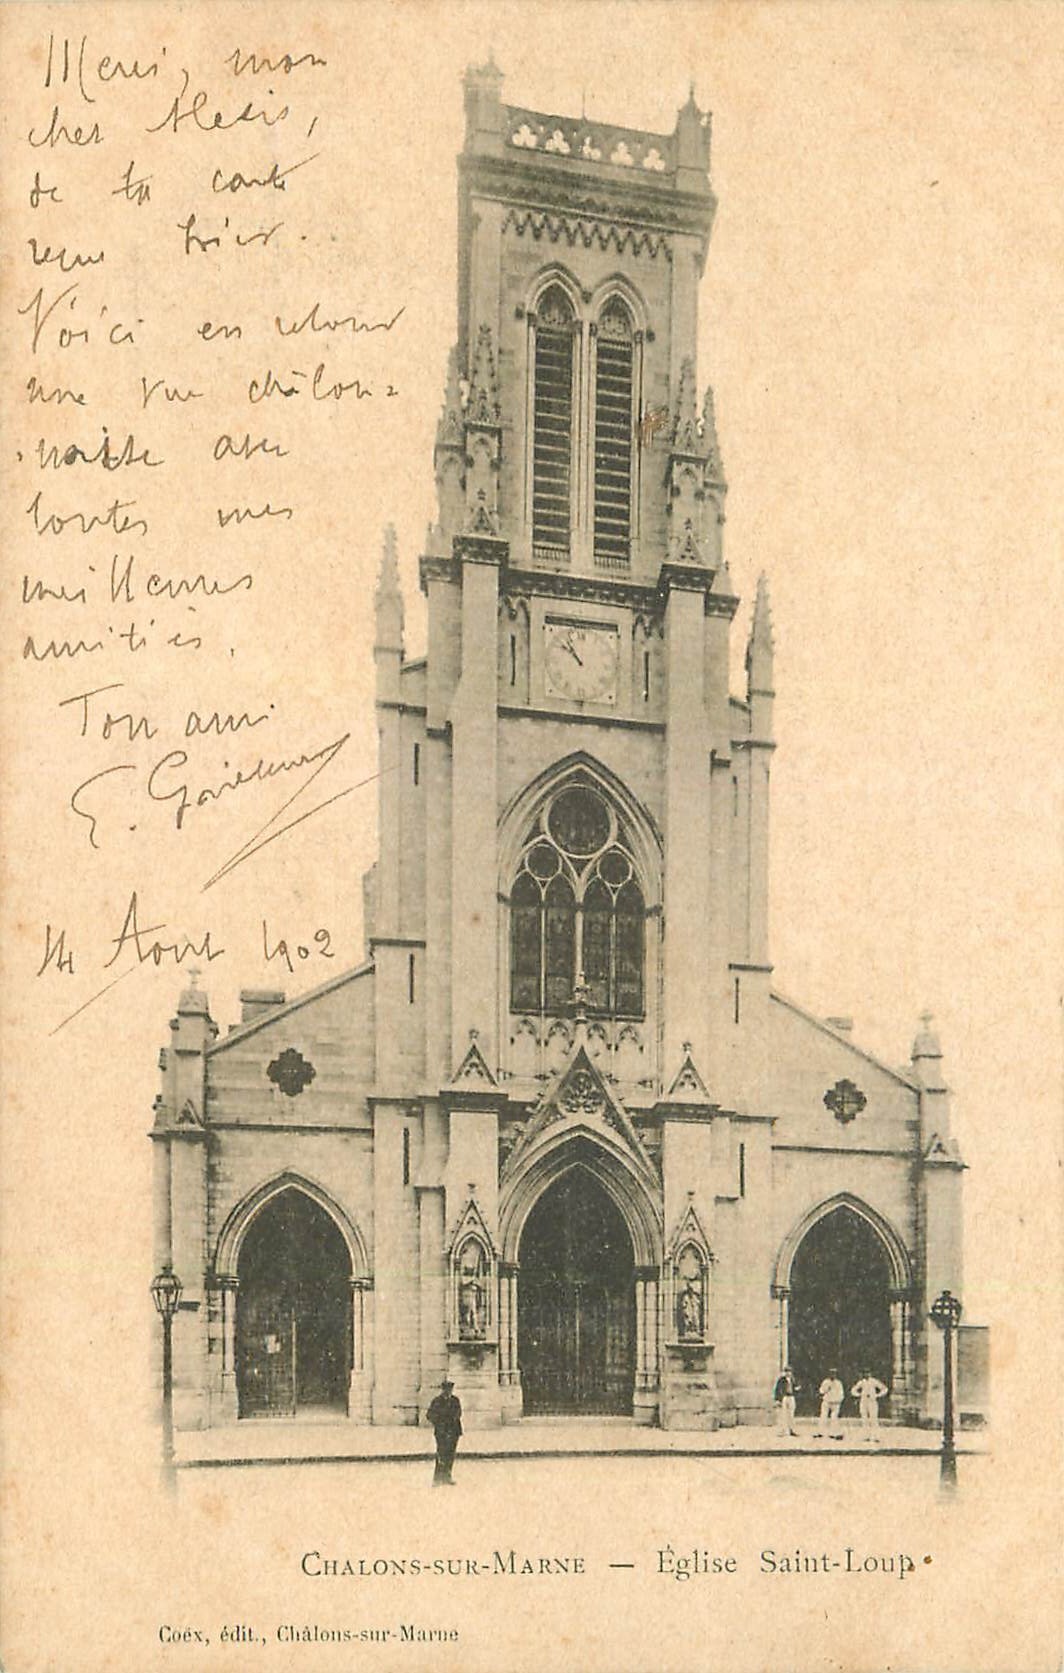 Merci, mon
cher Alexis,
de ta carte
reçue hier..
Voici en retour
une vue châlon=
naise avec
toutes mes
meilleures
amitiés.
Ton ami
E.
14 Aout 1902
CHALONS-SUR-MARNE — Église Saint-Loup
Coëx, édit., Châlons-sur-Marne